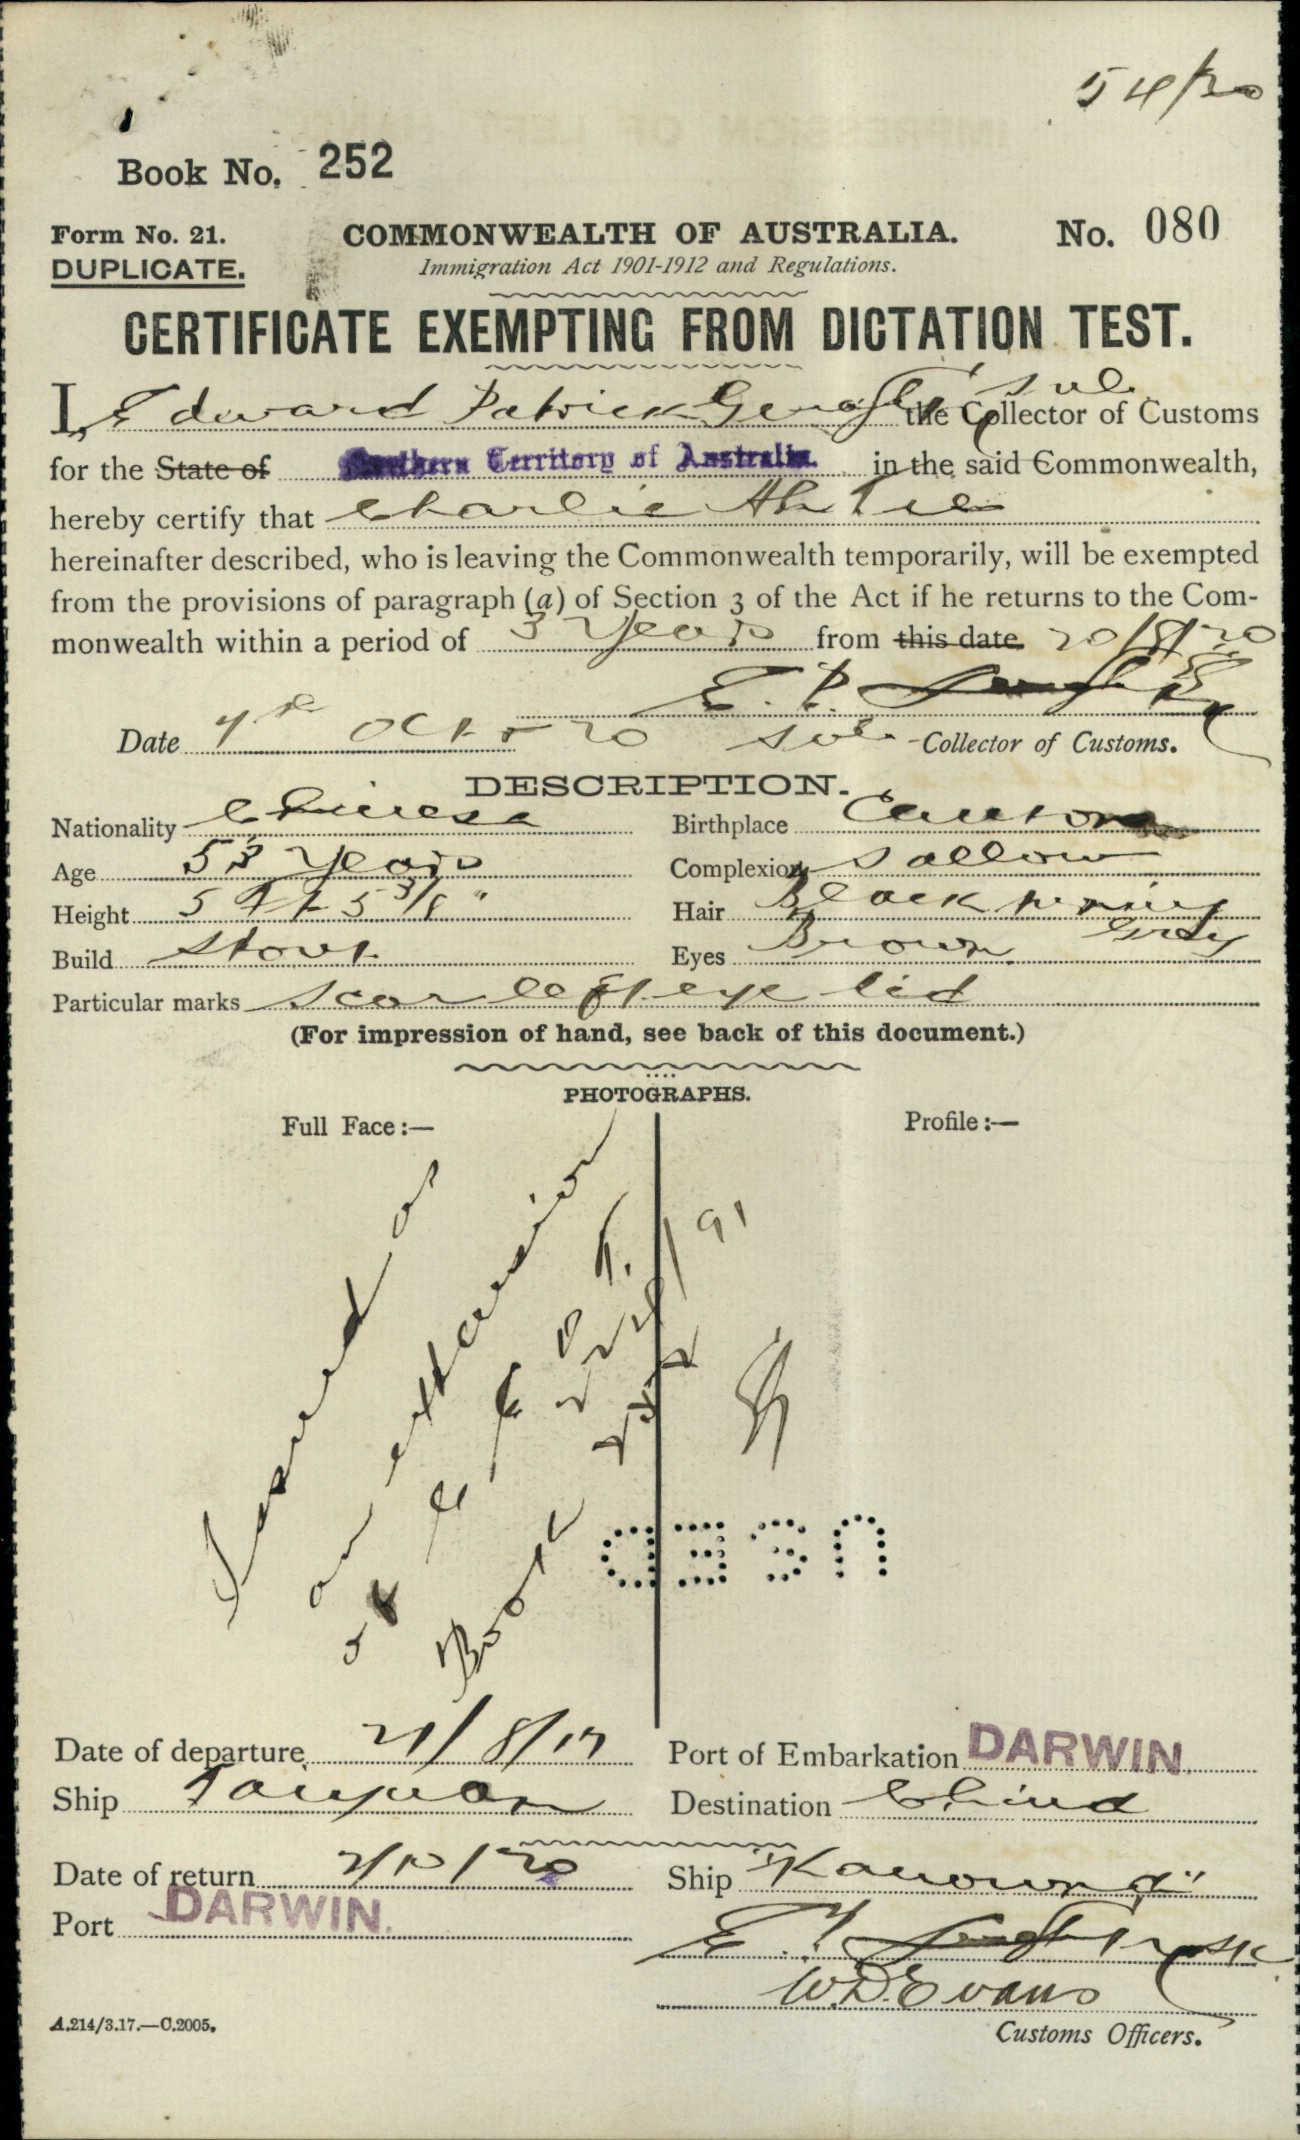 54/20
Book No. 252
Form No. 21. COMMONWEALTH OF AUSTRALIA. No. 080
DUPLICATE. Immigration Act 1901-1912 and Regulations.
CERTIFICATE EXEMPTING FROM DICTATION TEST.
I, Edward Patrick Geraghty the Sub. Collector of Customs
for the State of Northern Territory of Australia. in the said Commonwealth,
hereby certify that Charlie Ah
hereinafter described, who is leaving the Commonwealth temporarily, will be exempted
from the provisions of paragraph (a) of Section 3 of the Act if he returns to the Com-
monwealth within a period of 3 Years from this date 20/8/20
E. P. Geraghty
Date 7th Octr 20 Sub. Collector of Customs.
DESCRIPTION.
Nationality Chinese Birthplace Canton
Age 53 Years Complexion Sallow
Height 5 ft 5 3/8" Hair Black turning Grey
Build Stout Eyes Brown
Particular marks Scar left eye lid
(For impression of hand, see back of this document.)
PHOTOGRAPHS.
Full Face:— Profile:—
Issued as
an extension
of C E D T.
Book
USED
Date of departure 21/8/17 Port of Embarkation DARWIN.
Ship Taiyuan Destination China
Date of return 2/10/20 Ship "Kanowna"
Port DARWIN.
E. P. Geraghty
W.D. Evans
A.214/3.17.—C.2005. Customs Officers.